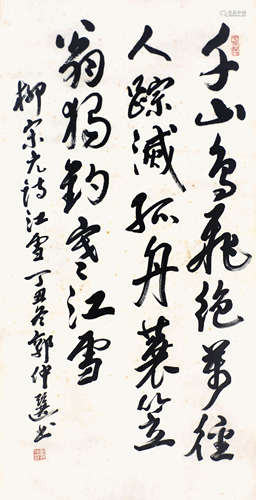 千山鸟飛绝萬徑
人踪滅孤舟蓑笠
翁獨钓寒江雪
柳宗元诗江雪丁丑冬郭仲選书